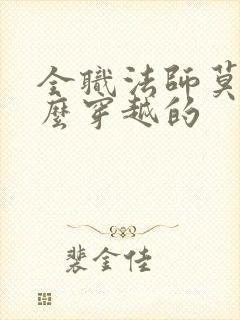 全職法師莫
麼穿越的
裴金佳